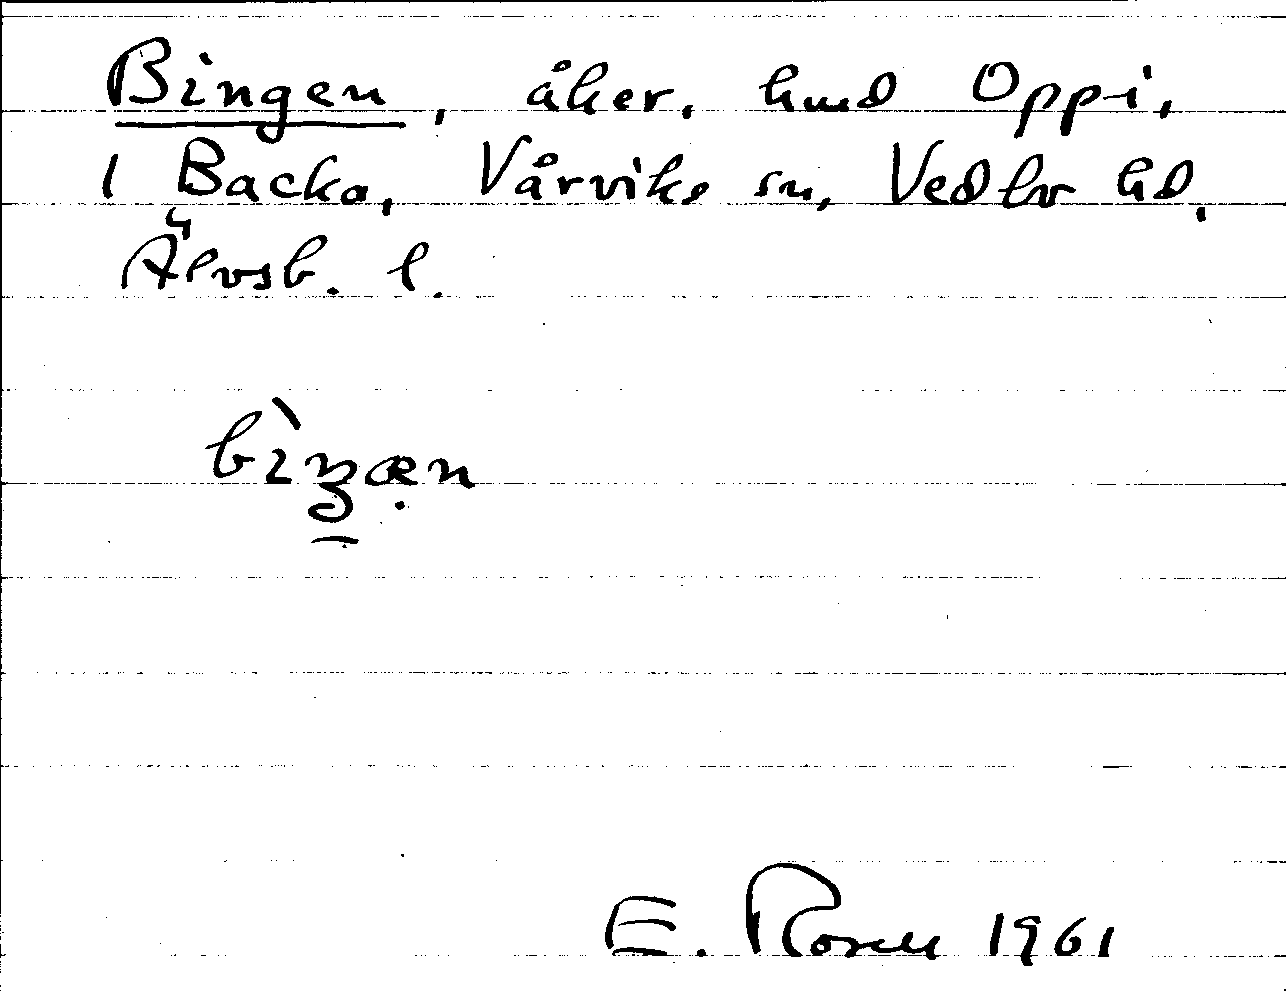 Bingen, åker. hmd Oppi,
1 Backa, Vårviks sn, Vedbo hd,
Älvsb. l.
E. Rosell 1961